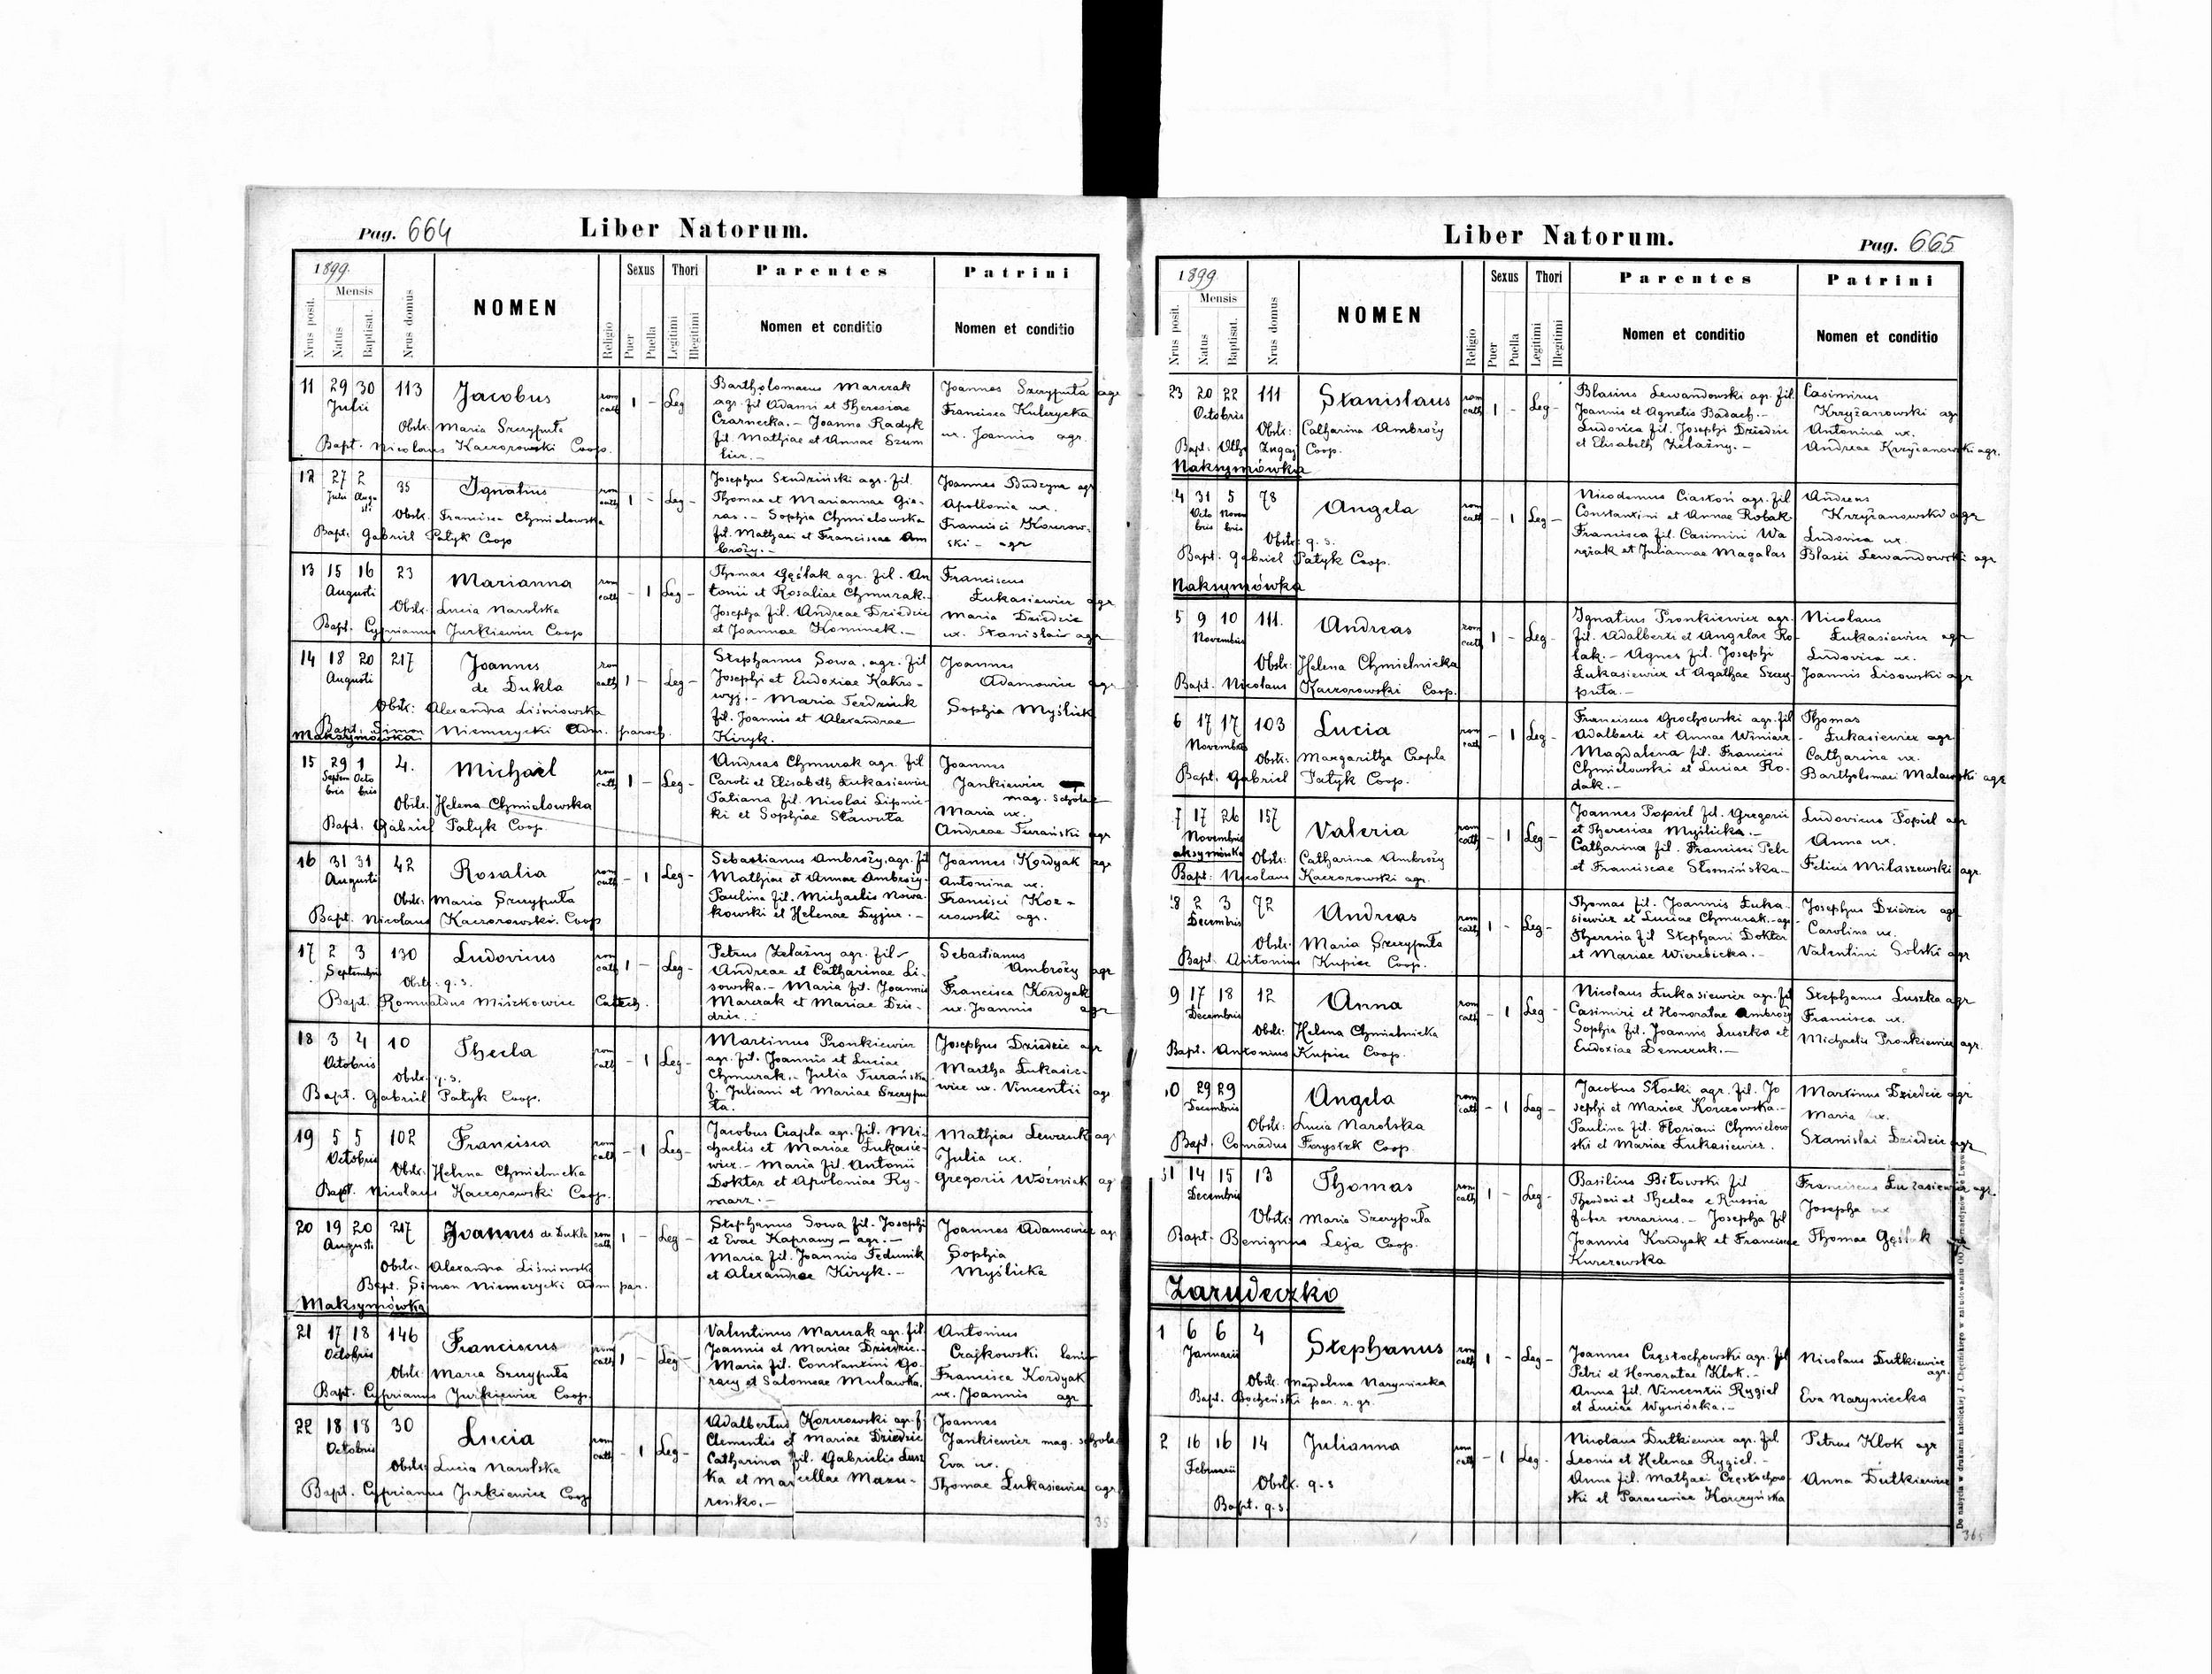 Pag. 664
Liber Natorum.
1899.
Nrus posit.
Mensis
Natus
Baptisat.
Nrus domus
NOMEN
Religio
Sexus
Puer
Puella
Thori
Legitimi
Illegitimi
Parentes
Nomen et conditio
Patrini
Nomen et conditio
11 29 30 113 Jacobus rom 1 - Leg
Julii cath
Obstr. Maria Szczyputa
Bapt. Nicolaus Kaczorowski Coop.
Bartholomaeus Marczak
agr. fil Adami et Theresiae
Czarnecka. - Joanna Radyk
fil. Mathiae et Annae Szum
Joannes Szczyputa agr
Francisca
ux. Joannis agr.
12 27 2 35 Ignatius rom 1 - Leg -
Julii Augu cath
sti
Obstr. Francisca Chmielowska
Bapt. Gabriel Patyk Coop
Josephus Studziński agr. fil.
Thomae et Mariannae Gie-
ras. - Sophia Chmielowska
fil. Mathaei et Franciscae Am
broży. -
Joannes Budzyna agr
Apollonia ux.
Francisci
ski - agr
13 15 16 23 Marianna rom - 1 Leg -
Augusti cath
Obstr. Lucia Narolska
Bapt. Cyprianus Jurkiewicz Coop
Thomas Gęślak agr. fil. An
tonii et Rosaliae Chmurak.
Josepha fil. Andreae Dziedzic
et Joannae Kominek. -
Franciscus
Łukasiewicz agr.
Maria Dziedzic
ux. Stanislai agr
14 18 20 217 Joannes rom 1 - Leg -
Augusti de Dukla cath
Obstr: Alexandra Liśniowska
Bapt. Simon Niemczycki Adm. paroch.
Maksymówka
Stephanus Sowa, agr. fil
Josephi et Eudoxiae Kakro-
wyj. - Maria
fil. Joannis et Alexandrae
Kiryk.
Joannes
Adamowicz agr
Sophia Myślick
15 29 1 4. Michael rom 1 - Leg -
Septem Octo cath
bris bris
Obstr. Helena Chmielowska
Bapt. Gabriel Patyk Coop.
Andreas Chmurak agr. fil
Caroli et Elisabeth Łukasiewicz
Tatiana fil. Nicolai Lipnic-
ki et Sophiae Sławuta
Joannes
Jankiewicz
mag. scholae
Maria ux.
Andreae Turański agr
16 31 31 42 Rosalia rom - 1 Leg -
Augusti cath
Obstr. Maria Szczyputa
Bapt. Nicolaus Kaczorowski. Coop
Sebastianus Ambroży. agr. fil
Mathiae et Annae Ambroży-
Paulina fil. Michaelis Nowa-
kowski et Helenae Dyjur. -
Joannes Kordyak agr
Antonina ux.
Francisci Kor-
agr.
17 2 3 130 Ludovicus rom 1 - Leg -
Septembris cath
Obstr. q. s.
Bapt. Romualdus Miśkowicz Catech.
Petrus Żelazny agr. fil
Andreae et Catharinae Li-
sowska. - Maria fil. Joannis
Marczak et Mariae Dzie-
dzic. -
Sebastianus
Ambroży agr
Francisca Kordyak
ux. Joannis agr
18 3 4 10 Thecla rom - 1 Leg -
Octobris cath
Obstr. q. s.
Bapt. Gabriel Patyk Coop.
Martinus Pronkiewicz
agr. fil. Joannis et Luciae
Chmurak. - Julia Turańska
f. Juliani et Mariae Szczypu
ta.
Josephus Dziedzic agr
Martha Łukasie-
wicz ux. Vincentii agr
19 5 5 102 Francisca rom - 1 Leg -
Octobris cath
Obstr. Helena Chmielnicka
Bapt. Nicolaus Kaczorowski Coop.
Jacobus Czapla agr. fil. Mi-
chaelis et Mariae Łukasie-
wicz. - Maria fil. Antonii
Doktor et Apoloniae Ry-
marz. -
Mathias Lewczuk agr
Julia ux.
Gregorii Woźniak agr
20 19 20 217 Joannes de Dukla rom 1 - Leg -
Augusti cath
Obstr. Alexandra Liśniowska
Bapt. Simon Niemczycki Adm par.
Maksymówka
Stephanus Sowa fil. Josephi
et Evae Kaprawy - agr. -
Maria fil. Joannis Fedunik
et Alexandrae Kiryk. -
Joannes Adamowicz agr
Sophia
Myślicka
21 17 18 146 Franciscus rom 1 - Leg -
Octobris cath
Obstr. Maria Szczyputa
Bapt. Cyprianus Jurkiewicz Coop.
Valentinus Marczak agr. fil.
Joannis et Mariae Dziedzic.
Maria fil. Constantini Go-
racy et Salomeae Mulawka.
Antonius
Czajkowski
Francisca Kordyak
ux. Joannis agr
22 18 18 30 Lucia rom - 1 Leg -
Octobris cath
Obstr. Lucia Narolska
Bapt. Cyprianus Jurkiewicz Coop
Adalbertus Korczowski agr. f
Clementis et Mariae Dziedzic
Catharina fil. Gabrielis Łusz
ka et Marcellae Mazu-
renko. -
Joannes
Jankiewicz mag. scholae
Eva ux.
Thomae Łukasiewicz agr.
Liber Natorum.
Pag. 665
1899
Nrus posit.
Mensis
Natus
Baptisat.
Nrus domus
NOMEN
Religio
Sexus
Puer
Puella
Thori
Legitimi
Illegitimi
Parentes
Nomen et conditio
Patrini
Nomen et conditio
23 20 22 111 Stanislaus rom 1 - Leg -
Octobris cath
Obstr: Catharina Ambroży
Bapt. Coop.
Maksymówka
Blasius Lewandowski agr. fil
Joannis et Agnetis Badach. -
Ludovica fil. Josephi Dziedzic
et Elisabeth Żelazny. -
Casimirus
Krzyżanowski agr
Antonina ux.
Andreae Krzyżanowski agr.
4 31 5 78 Angela rom - 1 Leg -
Octo Novem cath
bris bris
Obstr: q. s.
Bapt. Gabriel Patyk Coop.
Maksymówka
Nicodemus Ciastoń agr. fil
Constantini et Annae Robak
Francisca fil. Casimiri Wa
rziak et Juliannae Magalas
Andreas
Krzyżanowski agr
Ludovica ux.
Blasii Lewandowski agr
5 9 10 111. Andreas rom 1 - Leg -
Novembris cath
Obstr: Helena Chmielnicka
Bapt. Nicolaus Kaczorowski Coop.
Ignatius Pronkiewicz agr.
fil. Adalberti et Angelae Po-
lak. - Agnes fil. Josephi
Łukasiewicz et Agathae Szczy-
puta. -
Nicolaus
Łukasiewicz agr
Ludovica ux.
Joannis Lisowski agr
6 17 17 103 Lucia rom - 1 Leg -
Novembris cath
Obstr. Margaritha Czapla
Bapt. Gabriel Patyk Coop.
Franciscus Grochowski agr. fil
Adalberti et Annae Winiarz
Magdalena fil. Francisci
Chmielowski et Luciae Ro-
dak. -
Thomas
Łukasiewicz agr.
Catharina ux.
Bartholomaei agr
7 17 26 157 Valeria rom - 1 Leg -
Novembris cath
aksymówka
Obstr: Catharina Ambroży
Bapt: Nicolaus Kaczorowski agr.
Joannes Popiel fil. Gregorii
et Theresiae Myślicka. -
Catharina fil. Francisci Petr
et Franciscae Słomińska -
Ludovicus Popiel agr
Anna ux.
Felicis Milaszewski agr.
8 2 3 72 Andreas rom 1 - Leg -
Decembris cath
Obstr. Maria Szczyputa
Bapt. Antonius Kupiec Coop.
Thomas fil. Joannis Łuka-
siewicz et Luciae Chmurak. - agr
Theresia fil Stephani Doktor
et Mariae Wierzbicka. -
Josephus Dziedzic agr
Carolina ux.
Valentini Solski agr
9 17 18 12 Anna rom - 1 Leg -
Decembris cath
Obstr. Helena Chmielnicka
Bapt. Antonius Kupiec Coop.
Nicolaus Łukasiewicz agr. fil
Casimiri et Honoratae Ambroży
Sophia fil. Joannis Łuszka et
Eudoxiae Demczuk. -
Stephanus Łuszka agr
Francisca ux.
Michaelis Pronkiewicz agr.
30 29 29 Angela rom - 1 Leg -
Decembris cath
Obstr. Lucia Narolska
Bapt. Conradus Coop.
Jacobus Słocki agr. fil. Jo
sephi et Mariae Korczowska. -
Paulina fil. Floriani Chmielow
ski et Mariae Łukasiewicz.
Martinus Dziedzic agr
Maria ux.
Stanislai Dziedzic agr
31 14 15 13 Thomas rom 1 - Leg -
Decembris cath
Obstr. Maria Szczyputa
Bapt. Benignus Leja Coop.
Basilius Biłowski fil
Theodori et Theclae e Russia
faber serrarius. - Josepha fil
Joannis Kordyak et Franciscae
Franciscus Łukasiewicz agr.
Josepha ux
Thomae Gęślak
Zarudeczko
1 6 6 4 Stephanus rom 1 - Leg -
Januarii cath
Obstr. Magdalena Naryniecka
Bapt. Bocheński par. r. gr.
Joannes Częstochowski agr. fil
Petri et Honoratae Klok. -
Anna fil. Vincentii Rygiel
et Luciae Wywiórka. -
Nicolaus Dutkiewicz
agr.
Eva Naryniecka
2 16 16 14 Julianna rom - 1 Leg -
Februarii cath
Obstr. q. s
Bapt. q. s.
Nicolaus Dutkiewicz agr. fil.
Leonis et Helenae Rygiel. -
Anna fil. Mathaei Częstochow-
ski et Parasceviae Korczyńska
Petrus Klok agr
Anna Dutkiewicz